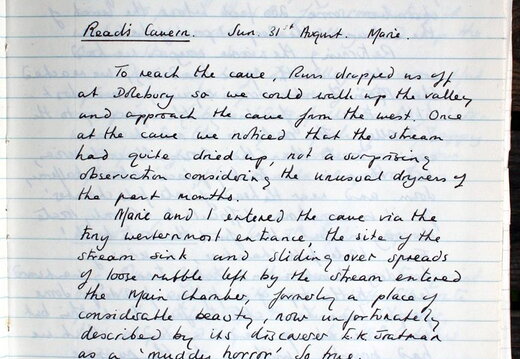 Read's Cavern. Sun. 31st August. Marie.
To reach the cave, Russ dropped us off
at Dolebury so we could walk up the valley
and approach the cave from the west. Once
at the cave we noticed that the stream
had quite dried up, not a surprising
observation considering the unusual dryness of
the past months.
Marie and I entered the cave via the
tiny westernmost entrance, the site of the
stream sink and sliding over spreads
of loose rubble left by the stream entered
the Main Chamber, formerly a place of
considerable beauty, now unfortunately
described by its discoverer E.K. Tratman
as a 'muddy horror' So true.